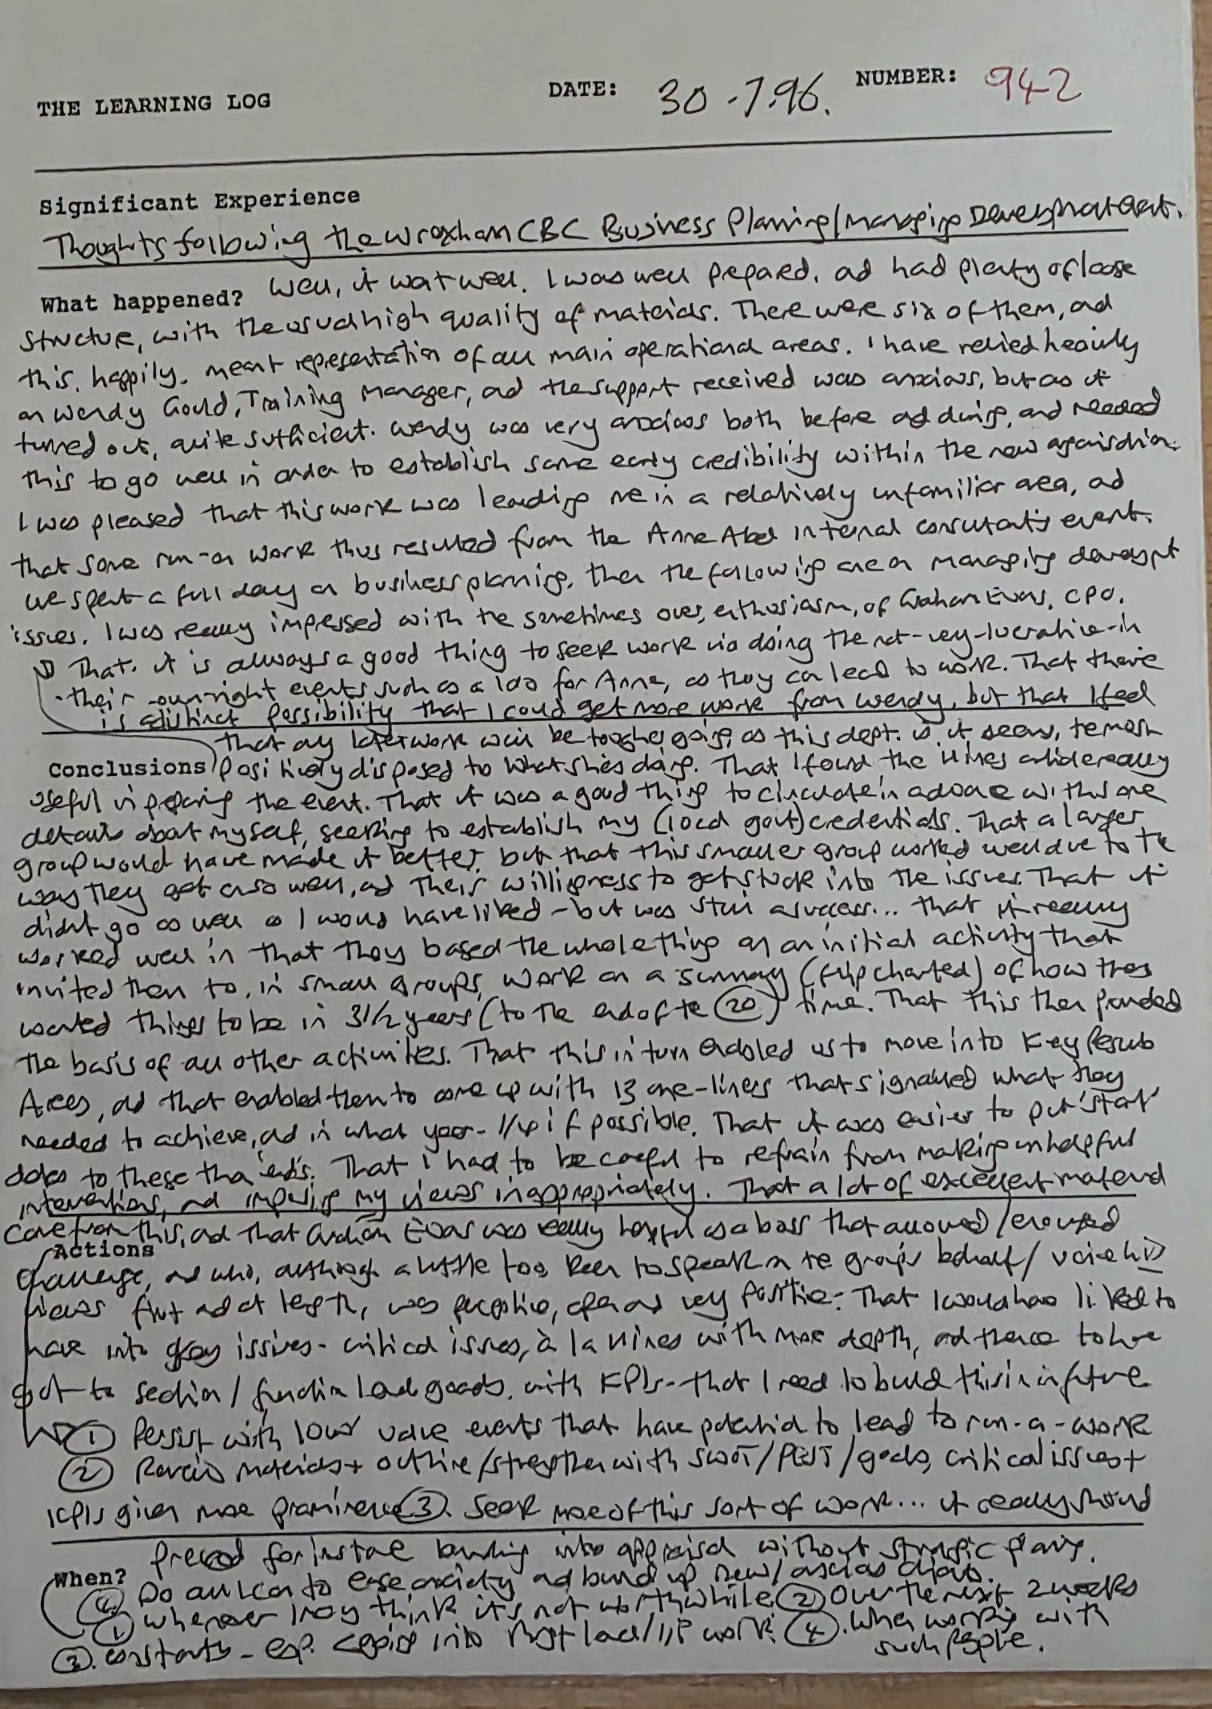 THE LEARNING LOG
DATE: 30.7.96. NUMBER: 942
Significant Experience
Thoughts following the Wrexham CBC Business Planning/Managing Development event.
What happened? Well, it went well. I was well prepared, and had plenty of loose
structure, with the usual high quality of materials. There were six of them, and
this, happily, meant representation of all main operational areas. I have relied heavily
on Wendy Gould, Training Manager, and the support received was anxious, but as it
turned out, quite sufficient. Wendy was very anxious both before and during, and needed
this to go well in order to establish some early credibility within the new organisation.
I was pleased that this work was leading me in a relatively unfamiliar area, and
that some run-on work thus resulted from the Anne Abel internal consultants event.
We spent a full day on business planning, then the following one on managing
issues. I was really impressed with the sometimes over, enthusiasm, of Graham Evans, CPO.
That it is always a good thing to seek work via doing the not-very-lucrative-in
-their-own-right events such as a for Anne, as they can lead to work. That there
is a distinct possibility that I could get more work from Wendy, but that I feel
that any later work will be tougher going, as this dept. is, it seems,
Conclusions positively disposed to what she's doing. That I found the Hines article really
useful in preparing the event. That it was a good thing to circulate in advance with some
details about myself, seeking to establish my (local govt) credentials. That a larger
group would have made it better, but that this smaller group worked well due to the
way they got on so well, and their willingness to get stuck into the issues. That it
didn't go as well as I would have liked - but was still a success... That it really
worked well in that they based the whole thing on an initial activity that
invited them to, in small groups, work on a summary (flipcharted) of how they
wanted things to be in 3 1/2 years (to the end of the 20) time. That this then provided
the basis of all other activities. That this in turn enabled us to move into Key Result
Areas, and that enabled them to come up with 13 one-liners that signalled what they
needed to achieve, and in what year - if possible. That it was easier to put 'start'
dates to these than 'ends'. That I had to be careful to refrain from making unhelpful
interventions, and imposing my views inappropriately. That a lot of excellent material
came from this, and that Graham Evans was really helpful as a boss that allowed/encouraged
Actions
challenge, and who, although a little too keen to speak on the group's behalf/voice his
views first and at length, was open and very positive. That I would have liked to
have into key issues - critical issues, à la Hines with more depth, and thence to have
got to section/function level goals, with KPIs - that I need to build this in in future
(1) Persist with low value events that have potential to lead to run-on-work
(2) materials + outline/strengthen with SWOT/PEST/goals, critical issues +
KPIs given more prominence (3). Seek more of this sort of work... it really should
precede for instance into appraisal without strategic plans.
When? (4) Do all I can to ease anxiety and build up new/anxious clients.
(1) Whenever I may think it's not worthwhile (2) Over the next 2 weeks
(3). Constantly - esp. into work (4). When working with
such people.